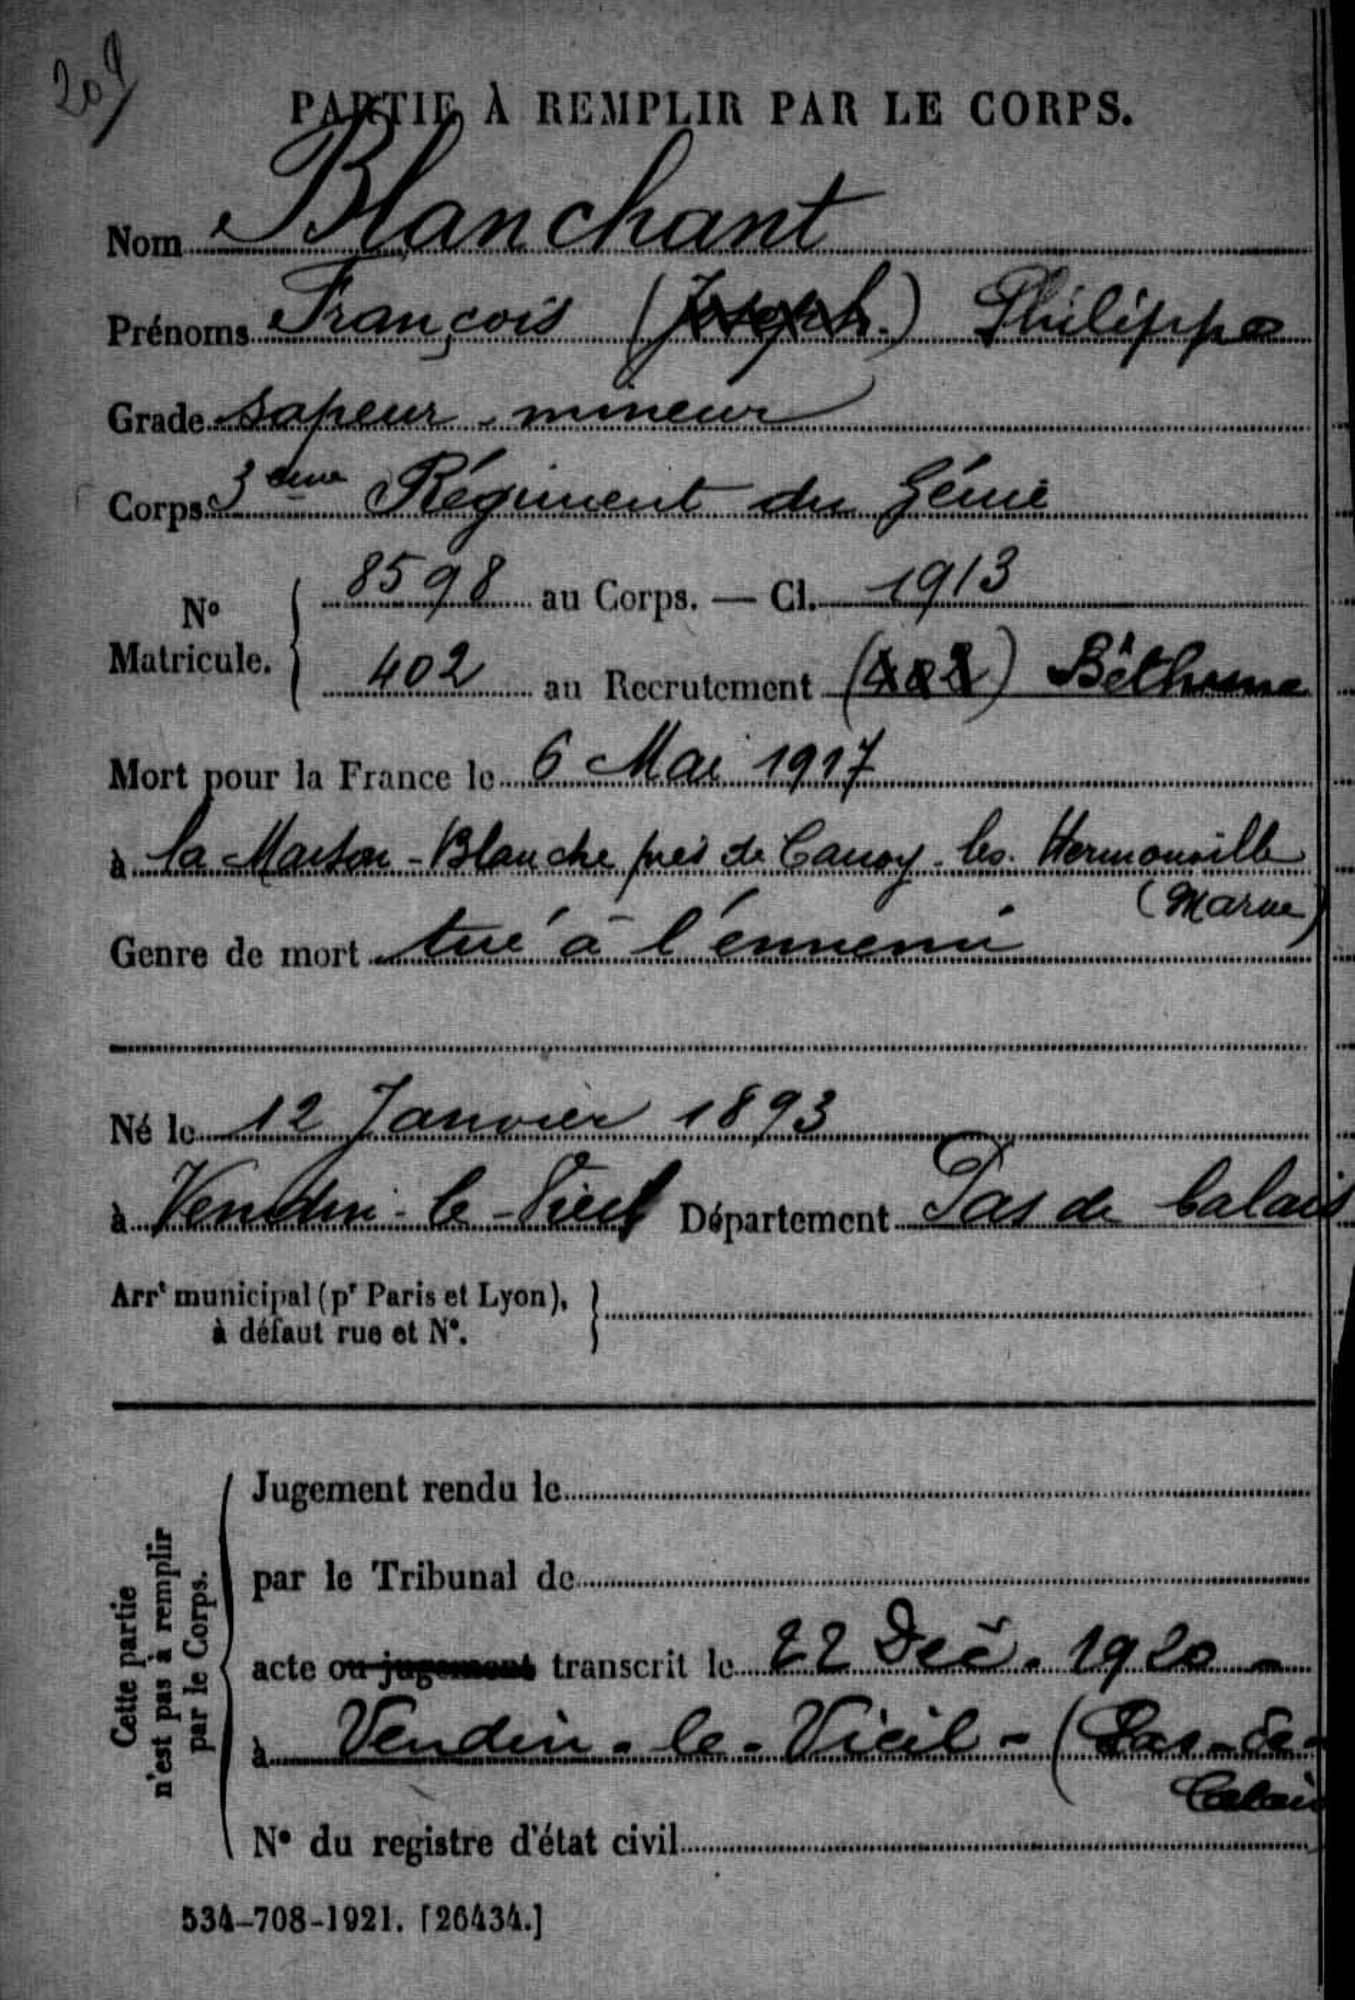 209
PARTIE À REMPLIR PAR LE CORPS.
Nom Blanchant
Prénoms François (Joseph.) Philippe
Grade sapeur-mineur
Corps 3ème Régiment du Génie
8598 au Corps. — Cl. 1913
N°
Matricule.
402 au Recrutement (402) Béthune
Mort pour la France le 6 Mai 1917
à la Maison-Blanche près de Cauroy-les-Hermonville
(Marne)
Genre de mort tué à l'ennemi
Né le 12 Janvier 1893
à Vendin-le-Vieil Département Pas de Calais
Arrt municipal (pr Paris et Lyon),
à défaut rue et N°.
Cette partie
n'est pas à remplir
par le Corps.
Jugement rendu le
par le Tribunal de
acte ou jugement transcrit le 22 Déc. 1920 -
à Vendin-le-Vieil - (Pas-de-
Calais
N° du registre d'état civil
534-708-1921. [26434.]